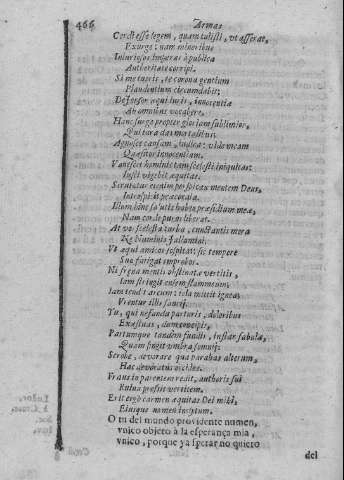 466 Armas
Certè esse legem, quam tulisti, vt asserat,
Exurge; nam minoribus
Iniurijs os impetas à publica
Authoritate corripi.
Si me tueris, te corona gentium
Plaudentium circumdabit:
Defensor æqui iuris, innocentia
Ab omnibus vocabere.
Hanc surge propter gloriam sublimior,
Qui iura das mortalibus.
Agnosce causam, iudica: vt læ meam
Quæsitor innocentiam.
Vanescet hominis tam scelesti iniquitas:
Iusti vigebit æquitas.
Scrutatur etenim perspicax mentem Deus,
Introspicit præcordia.
Illum hinc salutis habeo præsidium meæ,
Nam corde puros liberat.
At vos scelesta turba, cunctantis mora
Ne Numinis fallamini.
Vt æqui amicos sospitat: sic tempore
Suo fatigat improbos.
Ni signa mentis obstinatæ vertitis,
Iam stringit ensem flammeum:
Iam tendit arcum: tela mittit ignea;
Vrentur illis saucij.
Tu, qui nefanda parturis, doloribus
Exæstuas, dum concipis,
Partumque tandem fundis, instar fabulæ,
Quam fingit vmbra somnij:
Scrobe, devorare qua parabas alterum,
Hac devoratus occides.
Fraus in parentem redit, authoris sui
Ruina præstet verticem.
Erit ergò carmen æquitas Dei mihi,
Eiusque nomen inclytum.
O tu del mundo providente numen,
vnico objeto à la esperança mia,
vnico, porque ya sperar no quiero
del